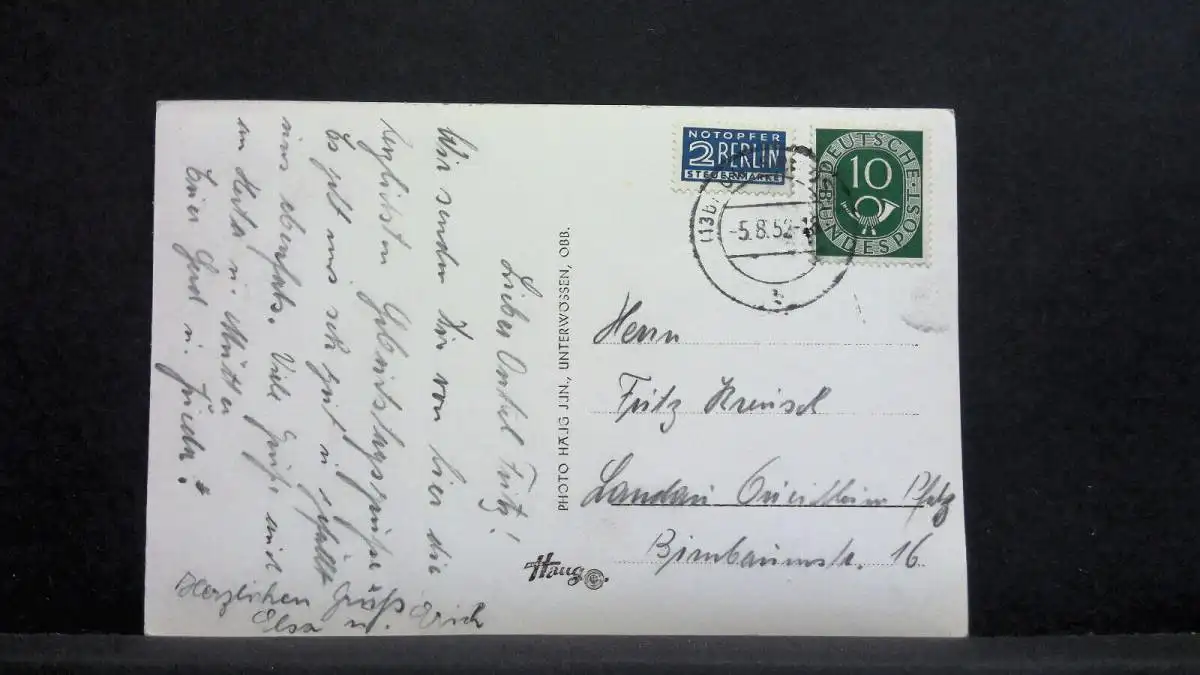 Lieber Onkel Fritz!
Wir senden Dir von hier die
herzlichsten Geburtstagsgrüße.
Es geht uns sehr gut u. gefällt
uns ebenfalls. Viele Grüße und
u. Mutter
Euer Gerd u.
Herzlichen Gruß
Elsa u. Erich
PHOTO HAUG JUN., UNTERWÖSSEN, OBB.
Haug
NOTOPFER
2 BERLIN
STEUERMARKE
DEUTSCHE
BUNDESPOST
10
(13b)
-5.8.52-18
Herrn
Fritz
Landau Queichheim Pfalz
Birnbaumstr. 16